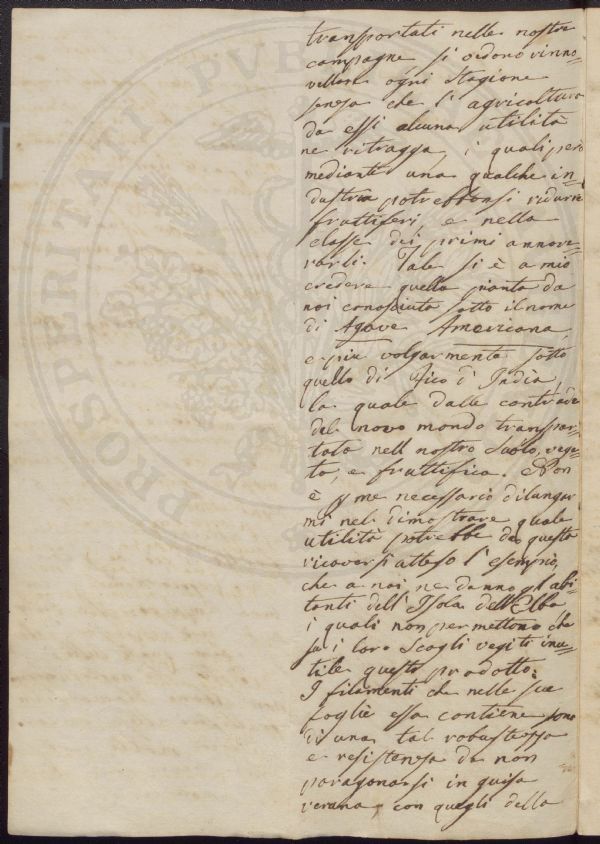 PROSPERITATI PVB
trasportati nelle nostre
campagne si vedono rinno-
vellare ogni Stagione
senza che l'agricoltura
da essi alcuna utilità
ne ritragga, i quali però
mediante una qualche in-
dustria potrebbonsi ridurre
fruttiferi e nella
classe dei primi annove-
rarli. Tale si è a mio
credere quella pianta da
noi conosciuta sotto il nome
di Agave Americana
e piu volgarmente sotto
quello di Fico d'India,
la quale dalle contrade
del novo mondo traspor-
tata nell nostro Suolo, vege-
ta, e fruttifica. Non
è p me necessario dilungar
mi nel dimostrare quale
utilità potrebbe da questa
ricoversi atteso l'esempio,
che a noi ne danno gl'abi-
tanti dell'Isola dell'Elba,
i quali non permettono che
su i loro Scogli vegiti inu-
tile questo prodotto.
I filamenti che nelle sue
foglie essa contiene sono
di una tal robustezza
e resistenza da non
paragonarsi in guisa
veruna con quegli della